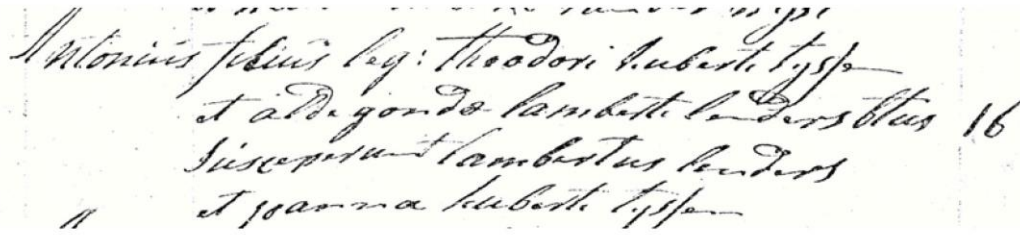 Antonius filius leg: theodori huberti tyssen
et aldegondæ lamberti lenders btus 16
susceperunt lambertus lenders
et joanna huberti tyssen